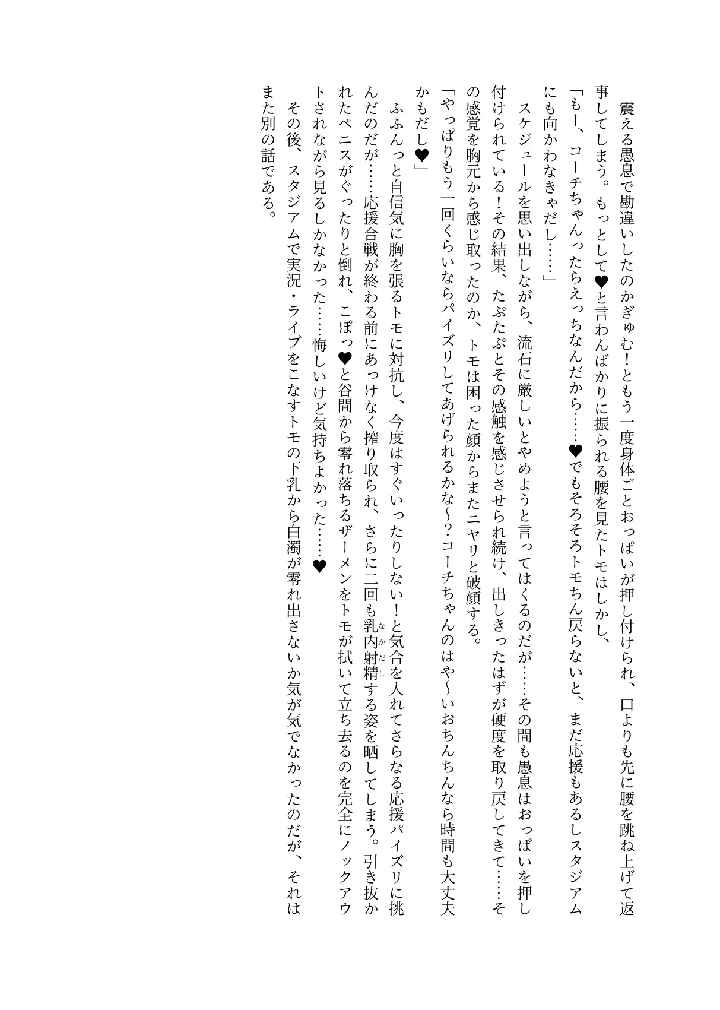 震える愚息で勘違いしたのかぎゅむ！ともう一度身体ごとおっぱいが押し付けられ、口よりも先に腰を跳ね上げて返
事してしまう。もっとして♥と言わんばかりに振られる腰を見たトモはしかし、
「もー、コーチちゃんったらえっちなんだから……♥でもそろそろトモちん戻らないと、まだ応援もあるしスタジアム
にも向かわなきゃだし……」
スケジュールを思い出しながら、流石に厳しいとやめようと言ってはくるのだが……その間も愚息はおっぱいを押し
付けられている！その結果、たぷたぷとその感触を感じさせられ続け、出しきったはずが硬度を取り戻してきて……そ
の感覚を胸元から感じ取ったのか、トモは困った顔からまたニヤリと破顔する。
「やっぱりもう一回くらいならパイズリしてあげられるかな〜？コーチちゃんのはや〜いおちんちんなら時間も大丈夫
かもだし♥」
ふふんっと自信気に胸を張るトモに対抗し、今度はすぐいったりしない！と気合を入れてさらなる応援パイズリに挑
んだのだが……応援合戦が終わる前にあっけなく搾り取られ、さらに二回も乳内射精なかだしする姿を晒してしまう。引き抜か
れたペニスがぐったりと倒れ、こぽっ♥と谷間から零れ落ちるザーメンをトモが拭いて立ち去るのを完全にノックアウ
トされながら見るしかなかった……悔しいけど気持ちよかった……♥
その後、スタジアムで実況・ライブをこなすトモの下乳から白濁が零れ出さないか気が気でなかったのだが、それは
また別の話である。